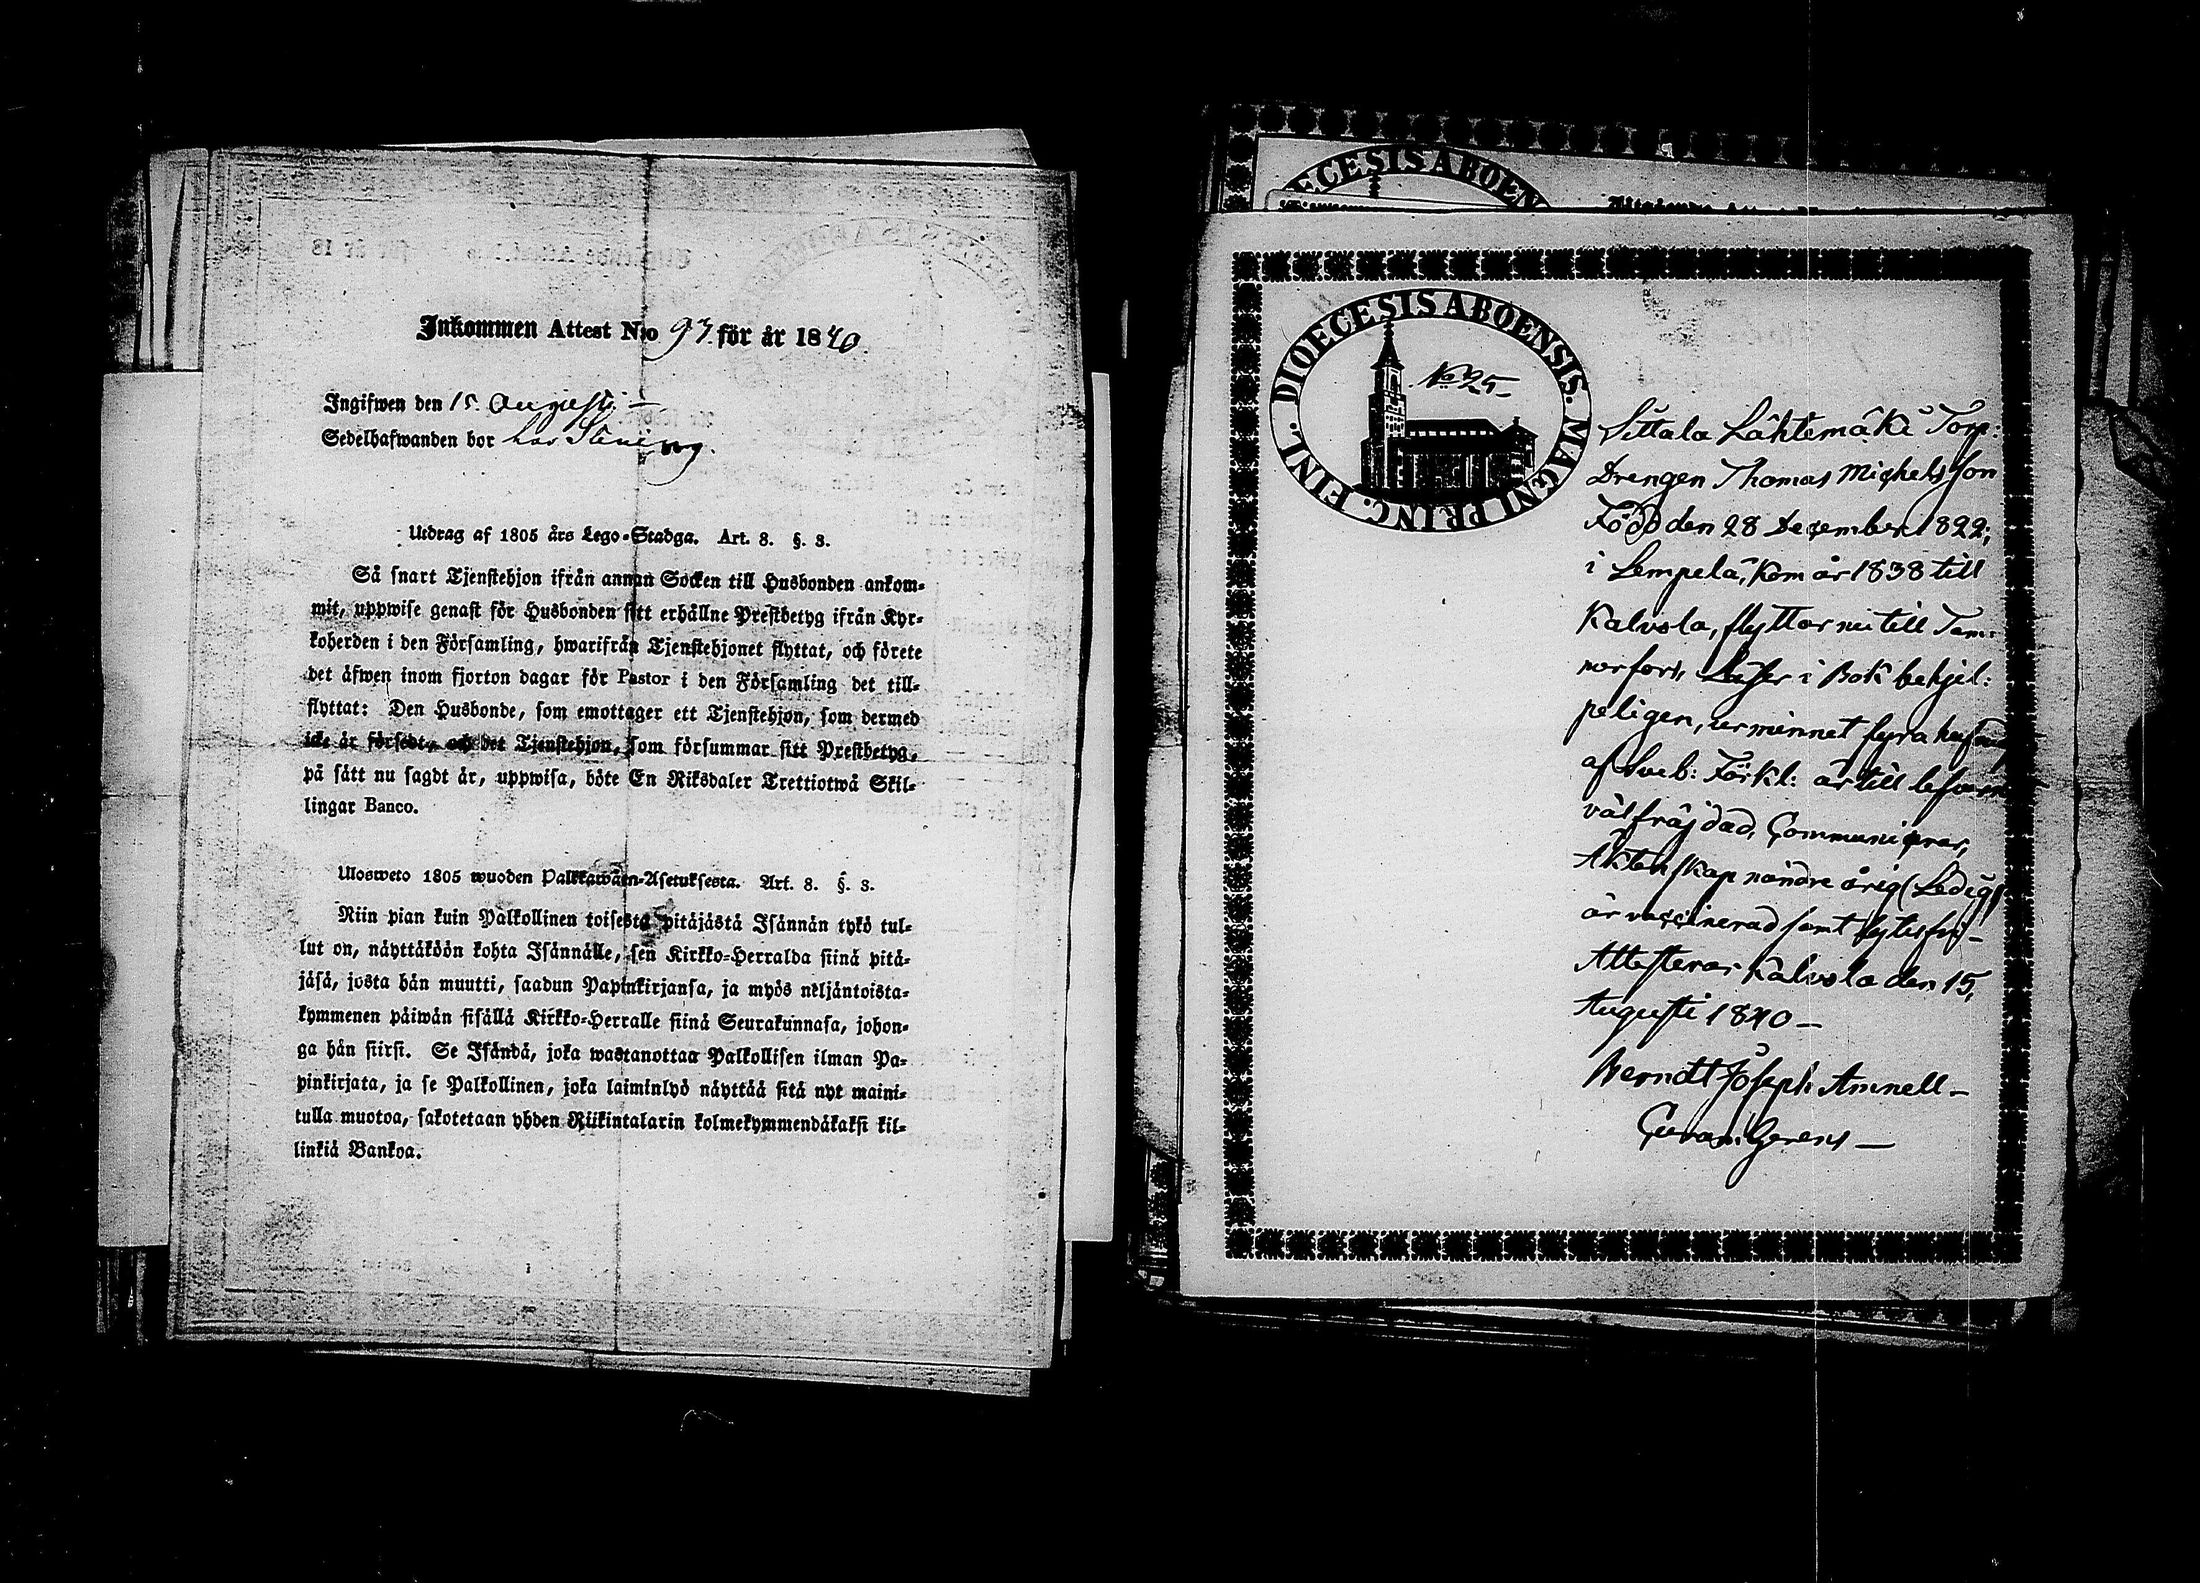 Inkommen Attest N:o 93 för år 1840.
Ingifwen den 15. Augusti —
Sedelhafwanden bor hos Stening.
Utdrag af 1805 års Lego-Stadga. Art. 8. §. 3.
Så snart Tjenstehjon ifrån annan Socken till Husbonden ankom-
mit, uppwise genast för Husbonden sitt erhållne Prestbetyg ifrån Kyr-
koherden i den Församling, hwarifrån Tjenstehjonet flyttat, och förete
det äfwen inom fjorton dagar för Pastor i den Församling det till-
flyttat: Den Husbonde, som emottager ett Tjenstehjon, som dermed
icke är försedt, och det Tjenstehjon, som försummar sitt Prestbetyg,
på sätt nu sagdt är, uppwisa, böte En Riksdaler Trettiotwå Skil-
lingar Banco.
Ulosweto 1805 wuoden Palkkawäen-Asetuksesta. Art. 8. §. 3.
Niin pian kuin Palkollinen toisesta pitäjästä Isännän tykö tul-
lut on, näyttäköön kohta Isännälle, sen Kirkko-Herralda siinä pitä-
jäsä, josta hän muutti, saadun Papinkirjansa, ja myös neljäntoista-
kymmenen päiwän sisällä Kirkko-Herralle siinä Seurakunnasa, johon-
ga hän siirsi. Se Isändä, joka wastanottaa Palkollisen ilman Pa-
pinkirjata, ja se Palkollinen, joka laiminlyö näyttää sitä nyt maini-
tulla muotoa, sakotetaan yhden Riikintalarin kolmekymmendäkaksi kil-
linkiä Bankoa.
ECESIS ABOEN
DIOECESIS ABOENSIS. MAGNI PRINC. FINL.
No 25
Sittala Lähtemäki Torp:
Drengen Thomas Michelsson
Född den 28 December 1822;
i Lempelä, kom år 1838 till
Kalvola, flyttar nu till Tam:
merfors, Läser i Bok behjel:
peligen, ur minnet fyra hufwud
af Sveb: Förkl: är till lefwern
välfräjdad, Communicerar,
Äktenskap nändre årig (Ledig)
är vaccinerad samt lytesfri —
Attesterar Kalvola den 15,
Augusti 1840 —
Berndt Joseph Amnell —
Curam Gerens —